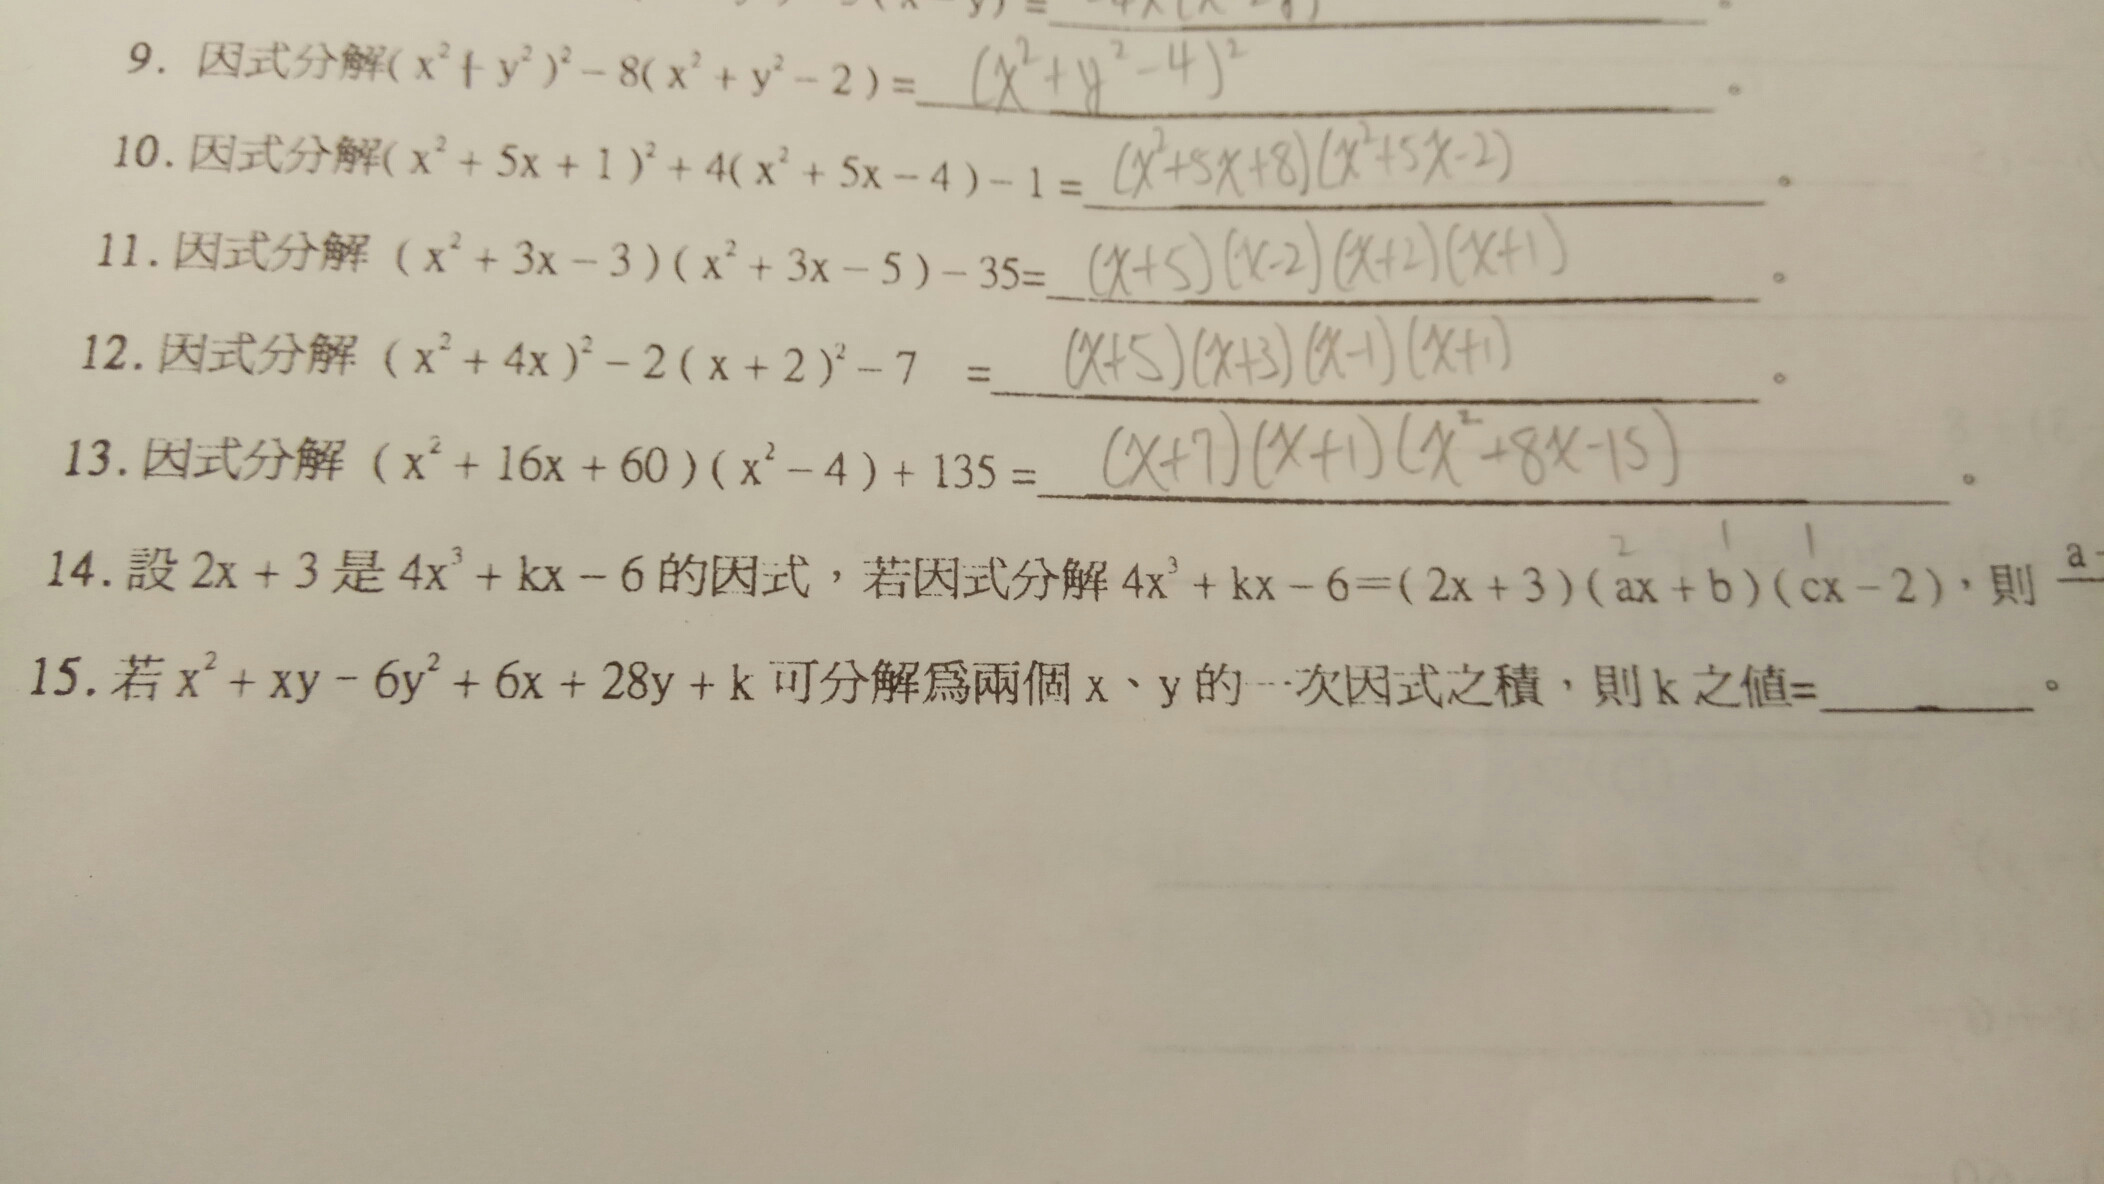 9. 因式分解( x² + y² )² − 8( x² + y² − 2 ) = (x²+y²-4)² 。
10. 因式分解( x² + 5x + 1 )² + 4( x² + 5x − 4 ) − 1 = (x²+5x+8)(x²+5x-2) 。
11. 因式分解 ( x² + 3x − 3 ) ( x² + 3x − 5 ) − 35= (x+5)(x-2)(x+2)(x+1) 。
12. 因式分解 ( x² + 4x )² − 2 ( x + 2 )² − 7 = (x+5)(x+3)(x-1)(x+1) 。
13. 因式分解 ( x² + 16x + 60 ) ( x² − 4 ) + 135 = (x+7)(x+1)(x²+8x-15) 。
2 1 1
14. 設 2x + 3 是 4x³ + kx − 6 的因式，若因式分解 4x³ + kx − 6＝( 2x + 3 ) ( ax + b ) ( cx − 2 )，則 a
15. 若 x² + xy − 6y² + 6x + 28y + k 可分解爲兩個 x、y 的一次因式之積，則 k 之値= 。